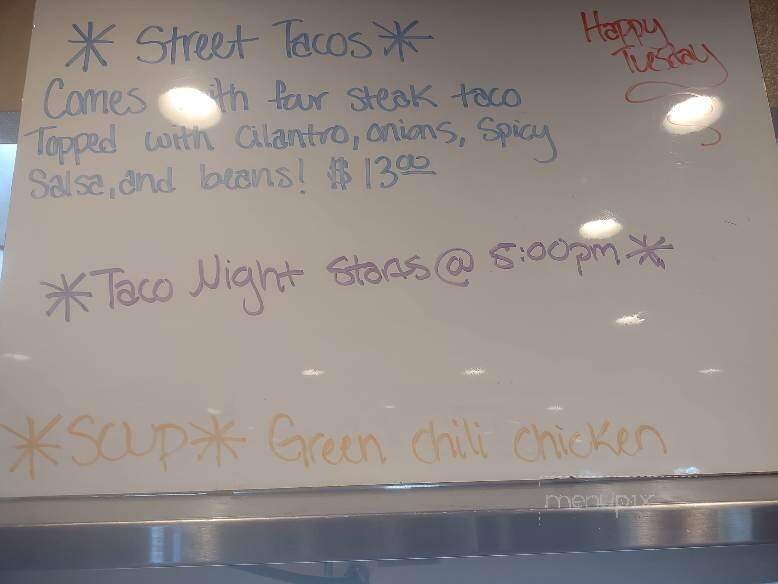 * Street Tacos *
Happy
Tuesday
Comes with four steak taco
Topped with cilantro, onions, Spicy
Salsa, and beans! $13.00
*Taco Night starts @ 5:00pm*
*SOUP* Green chili chicken
menupix